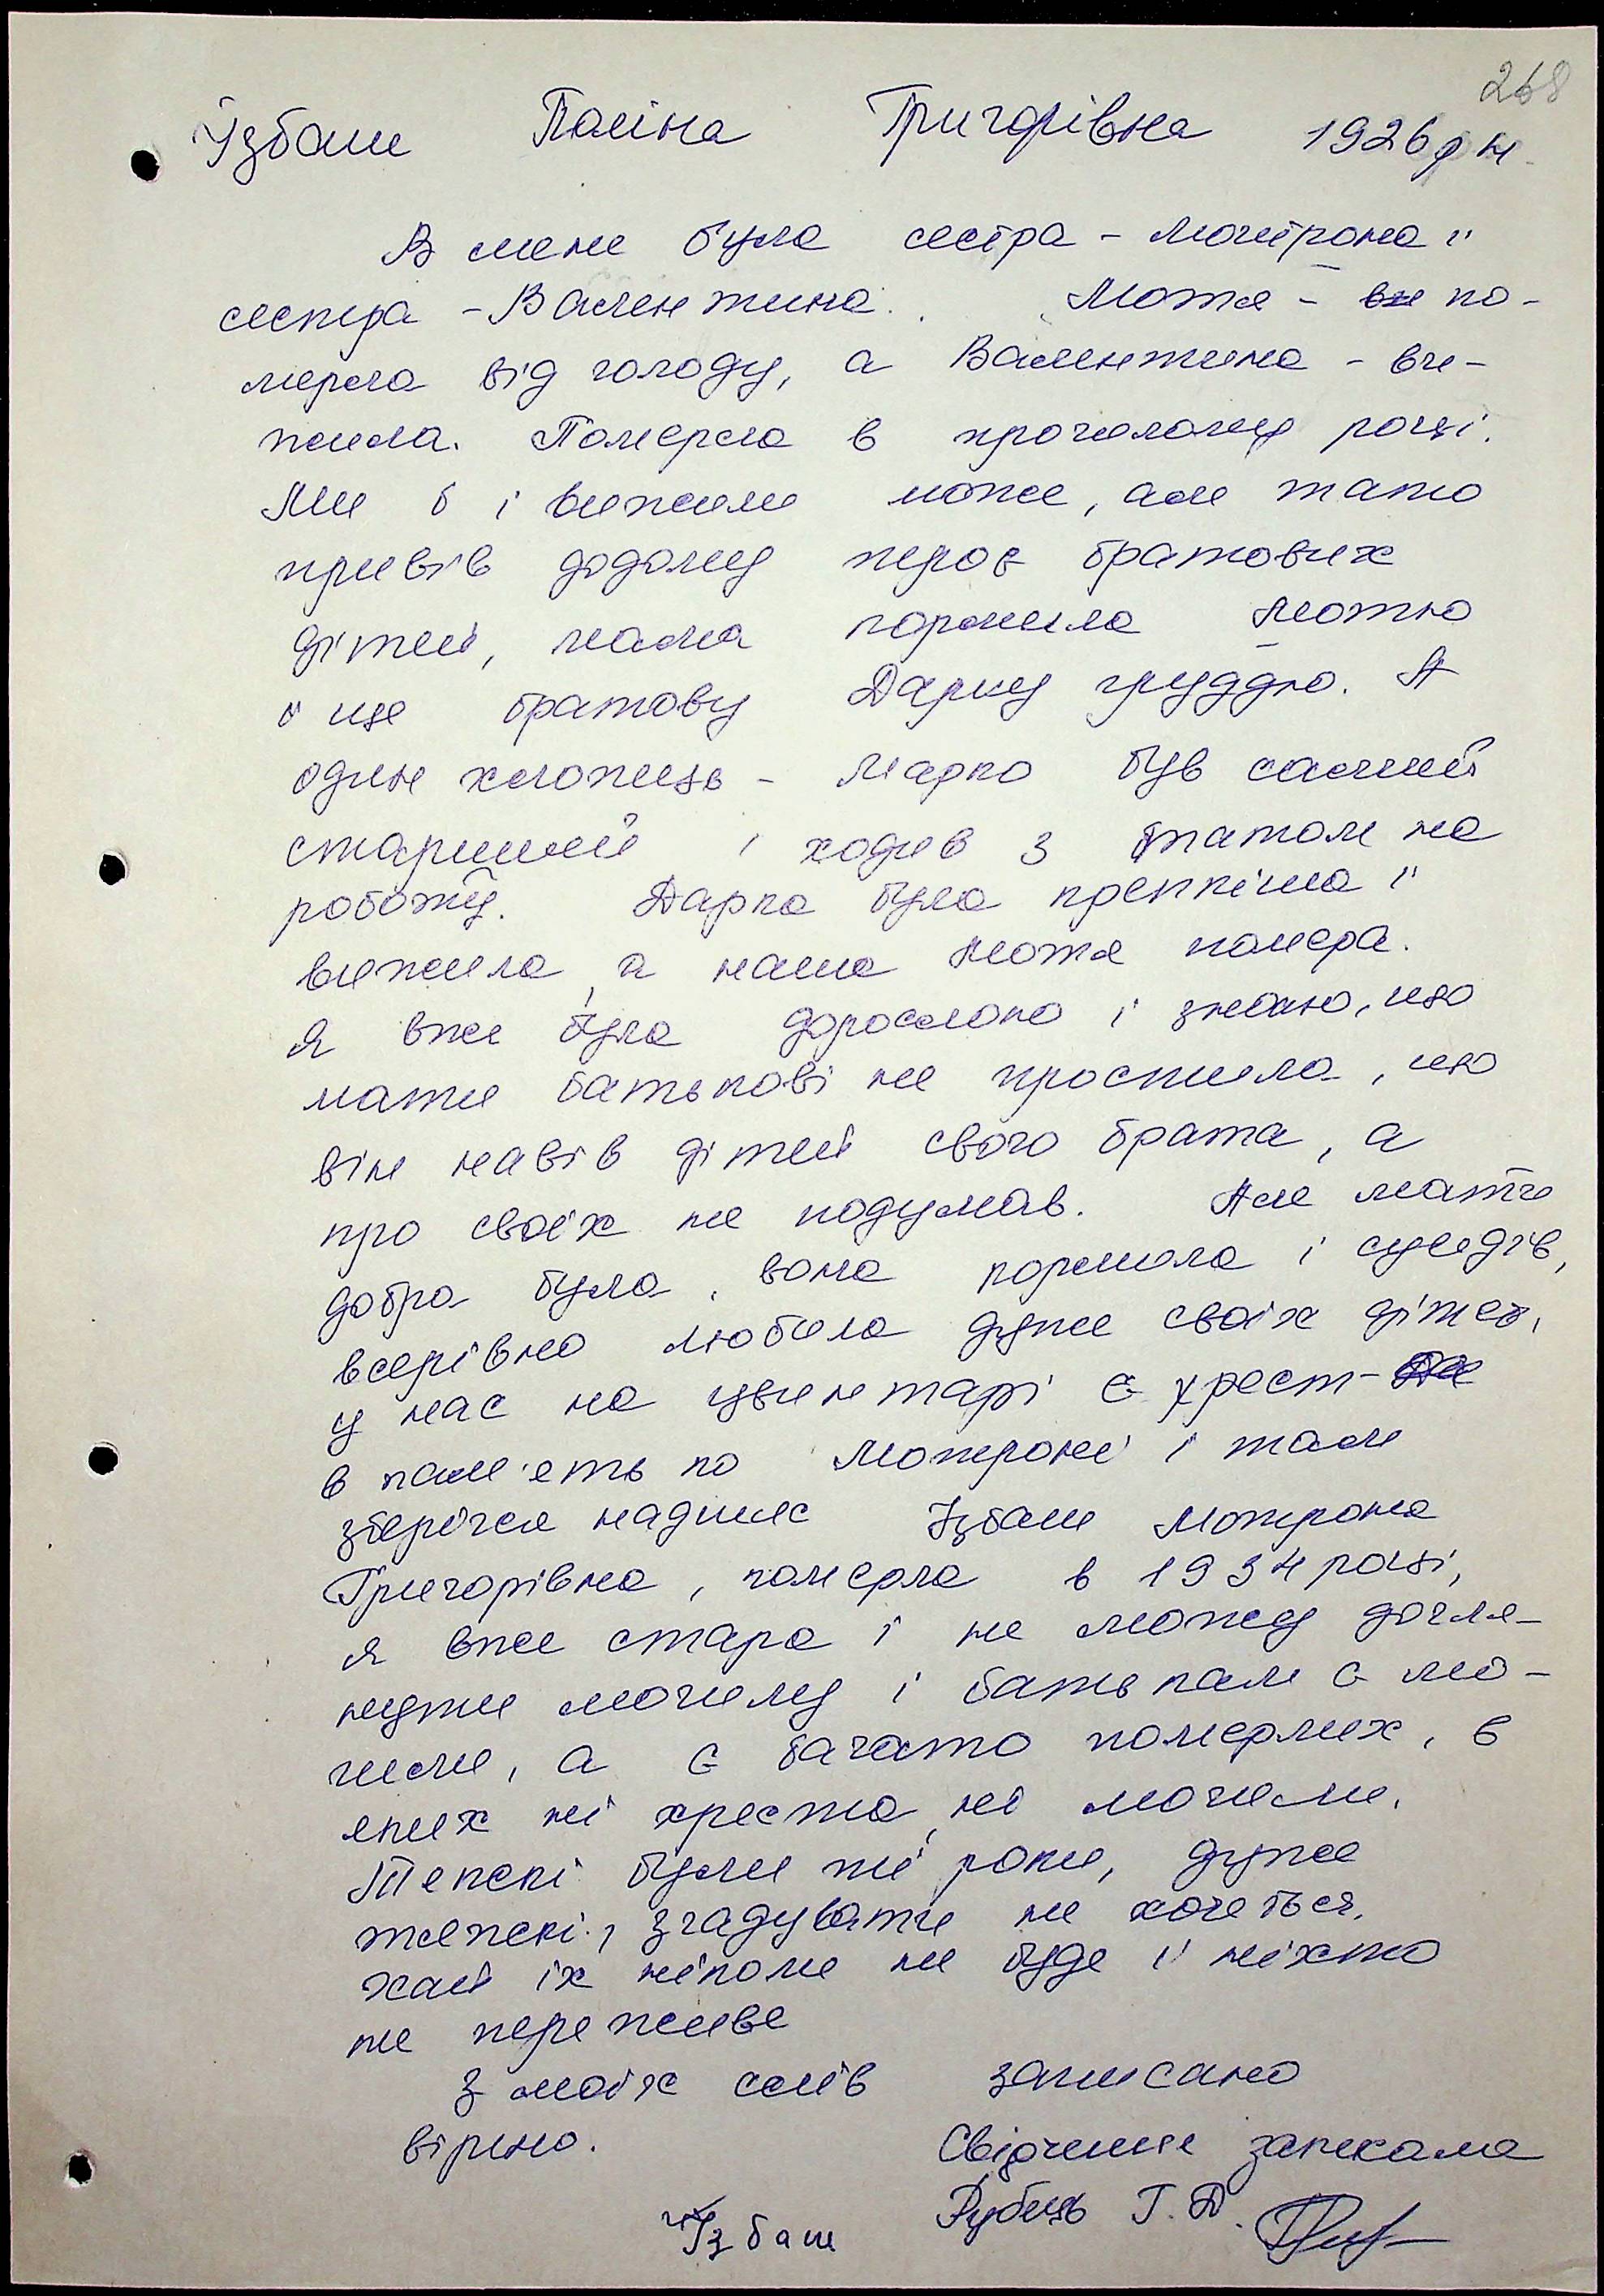 268
Їзбаш Поліна Григорівна 1926 р н.
В мене була сестра - Мотрона й
сестра - Валентина. Мотя - по-
мерла від голоду, а Валентина - ви-
жила. Померла в прошлому році.
Ми б і вижили може, але тато
привів додому трьох братових
дітей, мама кормила Мотю
й ще братову Дарку груддю. А
один хлопець - Марко був самий
старший і ходив з татом на
роботу. Дарка була крепкіша й
вижила, а наша Мотя помера.
Я вже була дорослою і знаю, що
мати батькові не простила, що
він навів дітей свого брата, а
про своїх не подумав. Але мати
добра була, вона кормила і сусідів,
всерівно любила дуже своїх дітей,
у нас на цвинтарі є хрест-
в пам'ять по Мотроні і там
зберігся надпис Їзбаш Мотрона
Григорівна, померла в 1934 році,
я вже стара і не можу догля-
нути могилу і батькам є мо-
гили, а є багато померлих, в
яких ні хреста, ні могили.
Тяжкі були ті роки, дуже
тяжкі, згадувати не хочеться,
хай їх ніколи не буде й ніхто
не переживе
З моїх слів записано
вірно. Свідчення записала
Рубець Г. Д.
Їзбаш